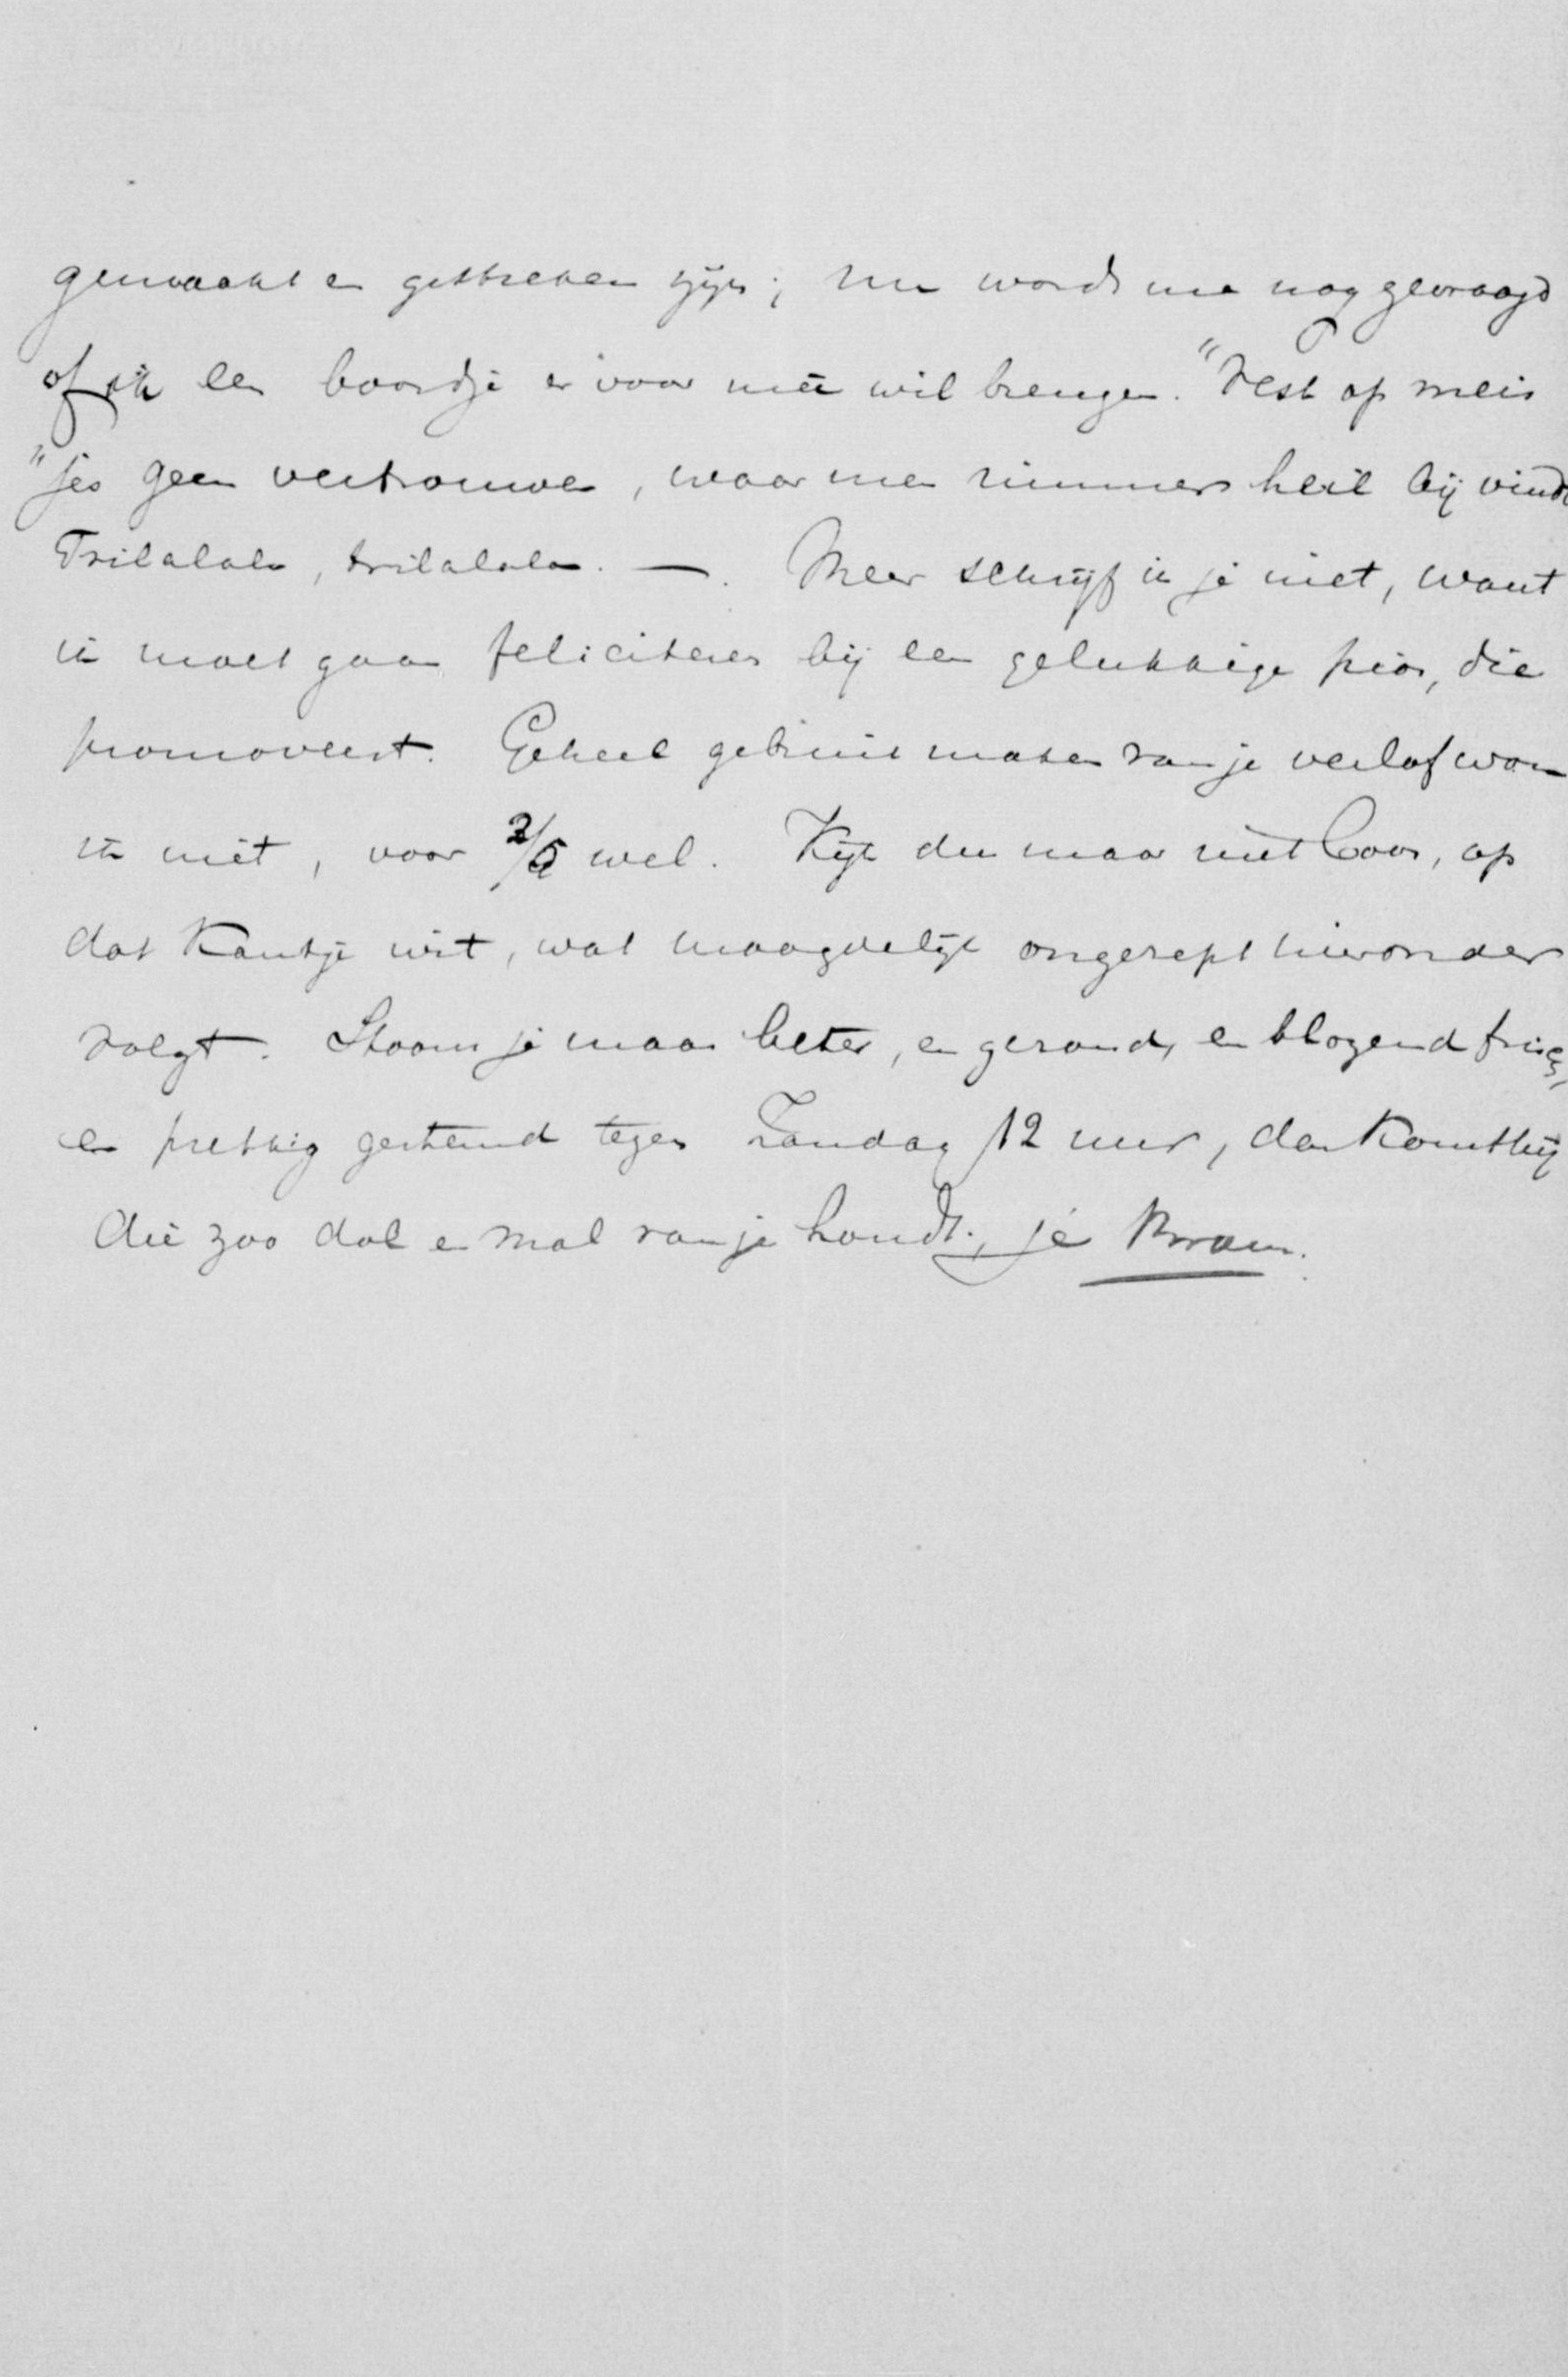 gemaakt en gestreken zijn; nu wordt me nog gevraagd
of ik een boordje er voor meê wil brengen. "Vest op meis
"jes geen vertrouwen, waar men nimmer heil bij vindt
Trilalala, trilalala. —. Meer schrijf ik je niet, want
ik moet gaan feliciteren bij een gelukkige pior, die
promoveert. Geheel gebruik maken van je verlof won
ik niet, voor 2/5 wel. Kijk du maar niet boos, op
dat kantje wit, wat maagdelijk ongerept hieronder
volgt. Stoom je maar beter, en gezond, en blozend frisch,
en prettig gestemd tegen Zondag 12 uur, dan komt hij
die zoo dol en mal van je houdt., je Bram.